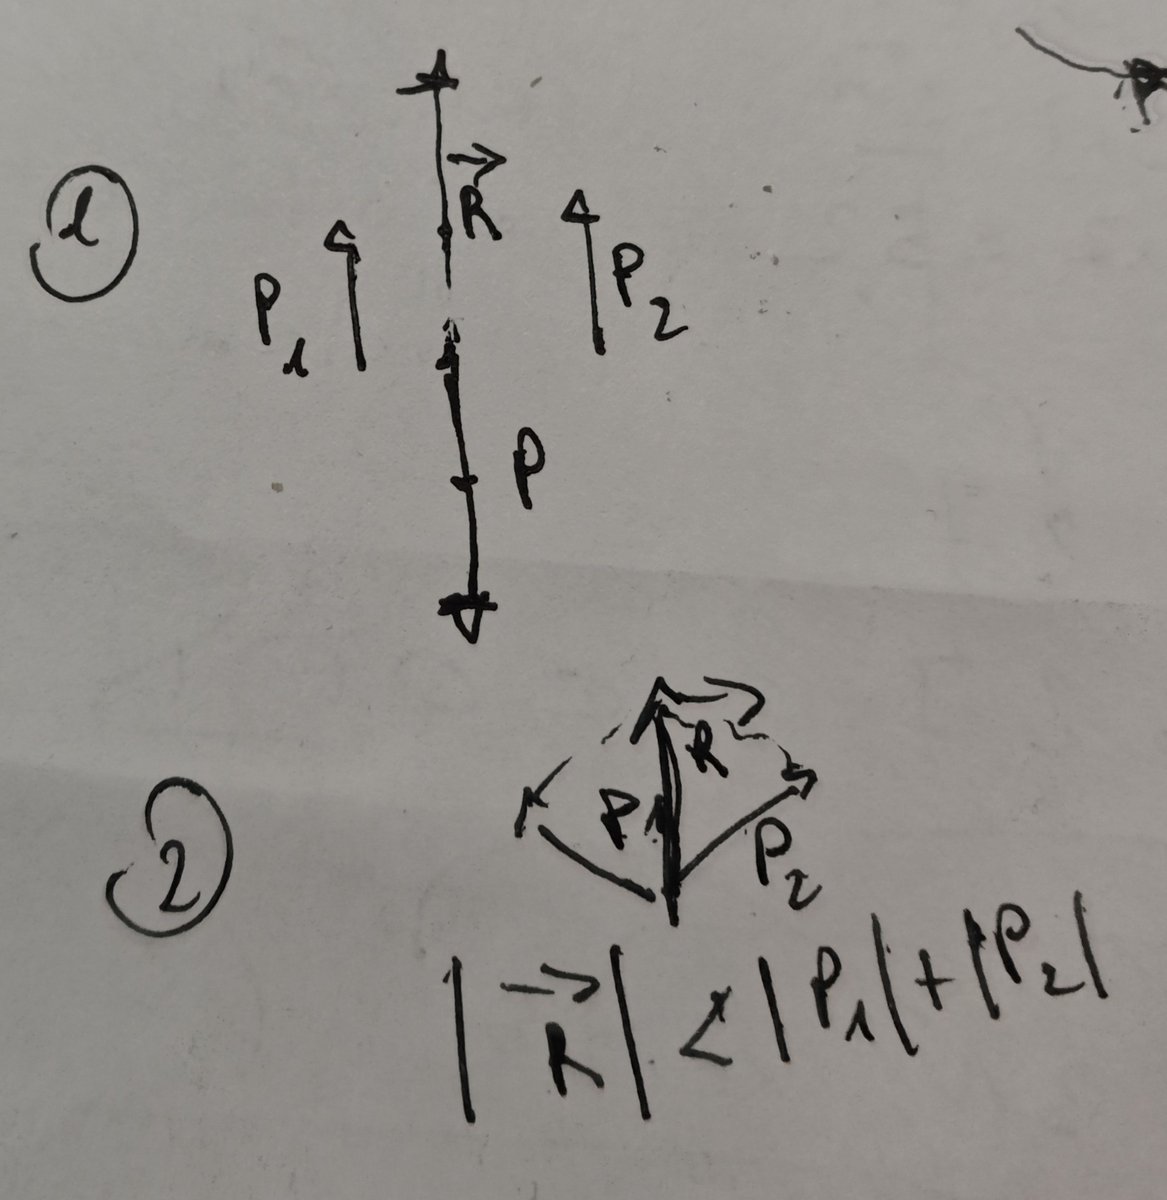 1
R
P1 P2
P
2
R
P1
P2
|R| < |P1| + |P2|